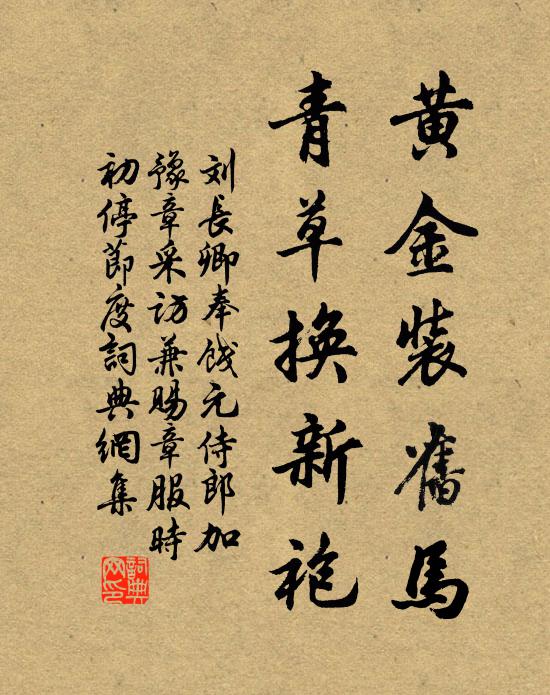 黄金装舊馬
青草換新袍
刘長卿奉餞元侍郎加
豫章采訪兼賜章服時
初停節度詞典網集
詞典
网印